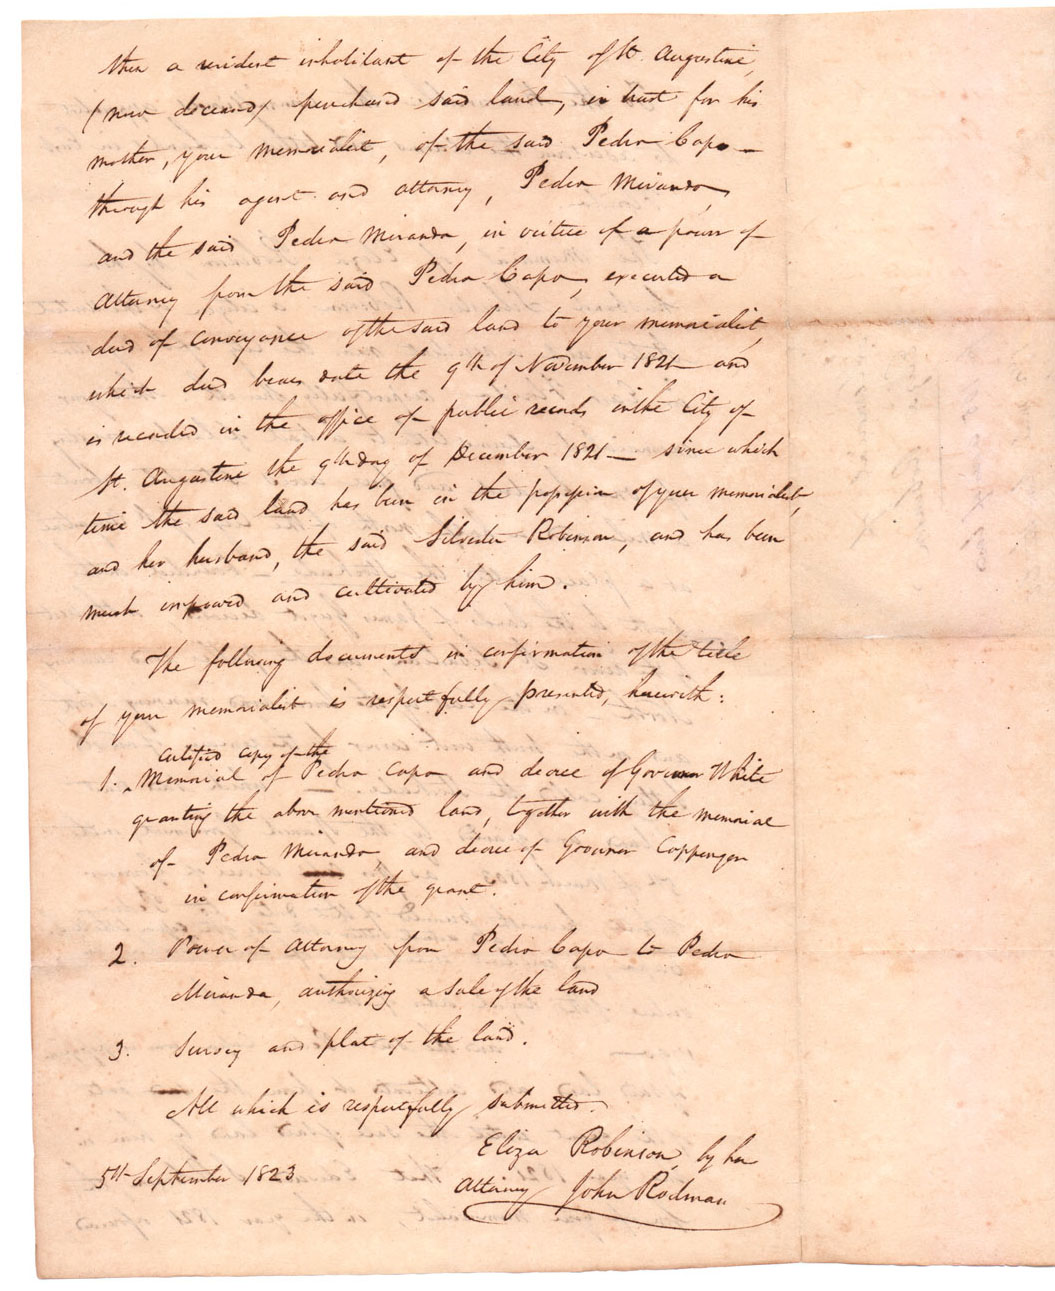 then a resident inhabitant of the City of St. Augustine,
(now deceased) purchased said land, in trust for his
mother, your memorialist, of the said Pedro Capo —
through his agent and attorney, Pedro Miranda,
and the said Pedro Miranda, in virtue of a power of
Attorney from the said Pedro Capo, executed a
deed of conveyance of the said land to your memorialist,
which deed bears date the 9th of November 1821 and
is recorded in the office of public records in the City of
St. Augustine the 9th day of December 1821 — since which
time the said land has been in the possession of your memorialist,
and her husband, the said, Silvester Robinson, and has been
much improved and cultivated by him.
The following documents in confirmation of the title
of your memorialist is respectfully presented, herewith:
certified copy of the
1. Memorial of Pedro Capo and decree of Governor White
granting the above mentioned land, together with the memorial
of Pedro Miranda and decree of Governor Coppinger
in confirmation of the grant.
2. Power of Attorney from Pedro Capo to Pedro
Miranda, authorizing a sale of the land
3. Survey and plat of the land.
All which is respectfully submitted.
Eliza Robinson, by her
5th September 1823
Attorney John Rodman